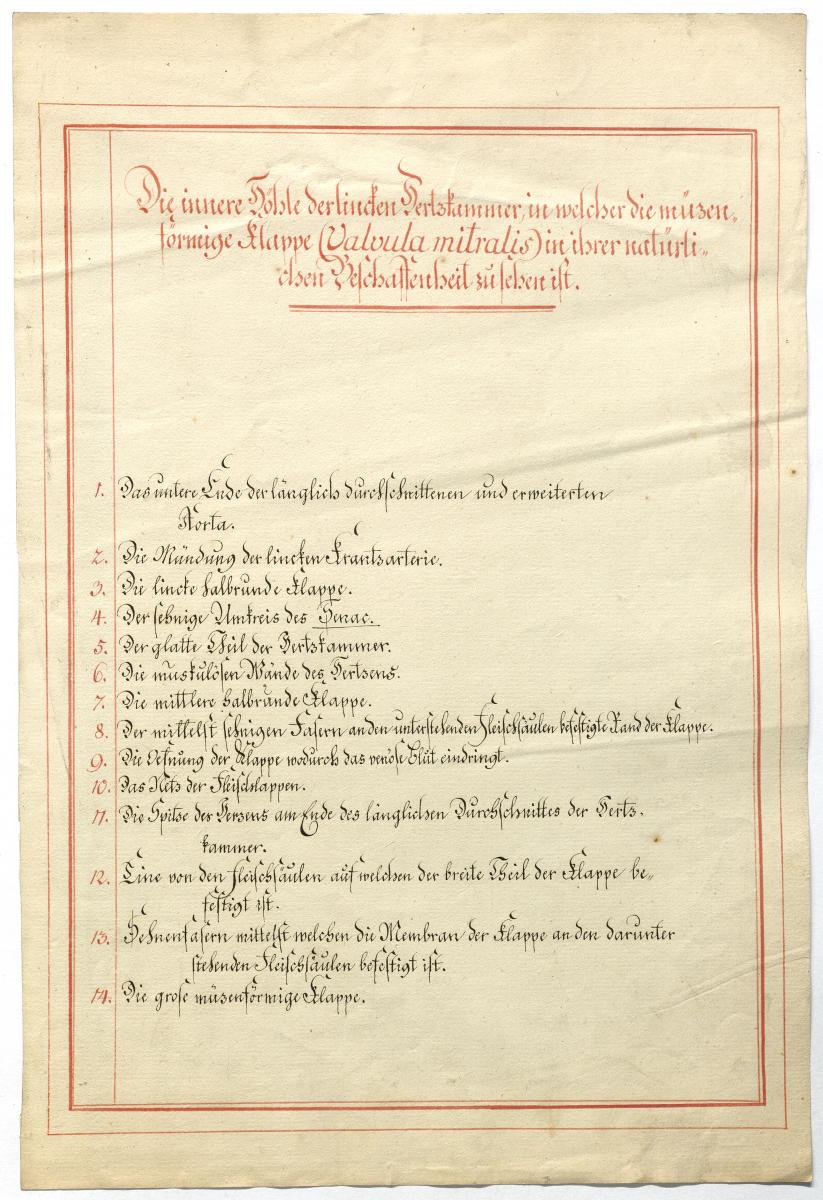 Die innere Höhle der lincken Hertzkammer, in welcher die müzen„
förmige Klappe (Valvula mitralis) in ihrer natürli„
chen Beschaffenheit zu sehen ist.
1. Das untere Ende der länglich durchschnittenen und erweiterten
Aorta.
2. Die Mündung der lincken Krantzarterie.
3. Die lincke halbrunde Klappe.
4. Der sehnige Umkreis des Senac.
5. Der glatte Theil der Hertzkammer.
6. Die muskulösen Wände des Hertzens.
7. Die mittlere halbrunde Klappe.
8. Der mittelst sehnigen Fasern an den unterstehenden Fleischsäulen befestigte Rand der Klappe.
9. Die Oefnung der Klappe wodurch das venöse Blut eindringt.
10. Das Netz der Fleischlappen.
11. Die Spitze des Herzens am Ende des länglichen Durchschnittes der Hertz„
kammer.
12. Eine von den Fleischsäulen auf welchen der breite Theil der Klappe be„
festigt ist.
13. Sehnenfasern mittelst welchen die Membran der Klappe an den darunter
stehenden Fleischsäulen befestigt ist.
14. Die grose müzenförmige Klappe.